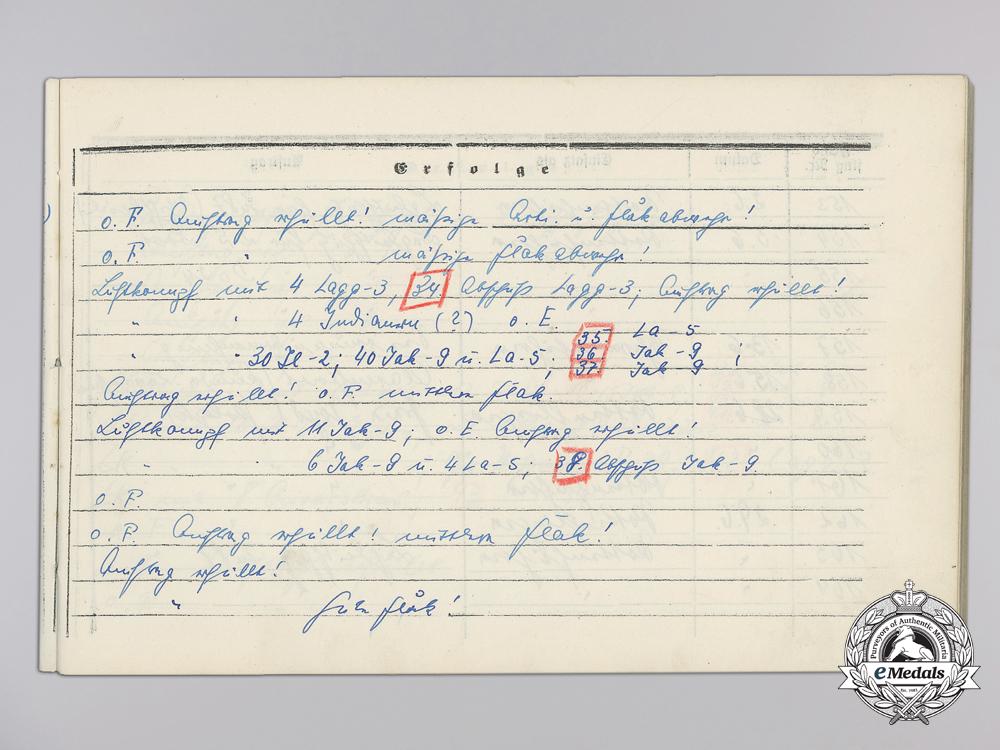 Erfolge
o. F. Auftrag erfüllt! mässige Arti. u. Flakabwehr!
o. F. " mässige Flakabwehr!
Luftkampf mit 4 Lagg-3, 34. Abschuss Lagg-3; Auftrag erfüllt!
" " 4 Indianern (?) o. E.
35. La-5
" " 30 Jl-2; 40 Jak-9 u. La-5; 36. Jak-9 ;
37. Jak-9
Auftrag erfüllt! o. F. mittlere Flak.
Luftkampf mit 11 Jak-9; o. E. Auftrag erfüllt!
" " 6 Jak-9 u. 4 La-5; 38. Abschuss Jak-9.
o. F.
o. F. Auftrag erfüllt! mittlere Flak!
Auftrag erfüllt!
" Gute Flak!
Purveyors of Authentic Militaria
eMedals